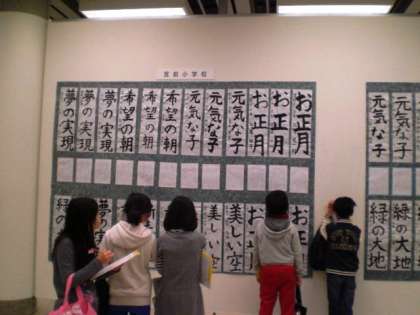 宮前小学校
お正月
お正月
お正月
元気な子
元気な子
元気な子
希望の朝
希望の朝
希望の朝
夢の実現
夢の実現
夢の実現
美しい空
美しい空
緑の
元気な子
元気な子
緑の大地
緑の大地